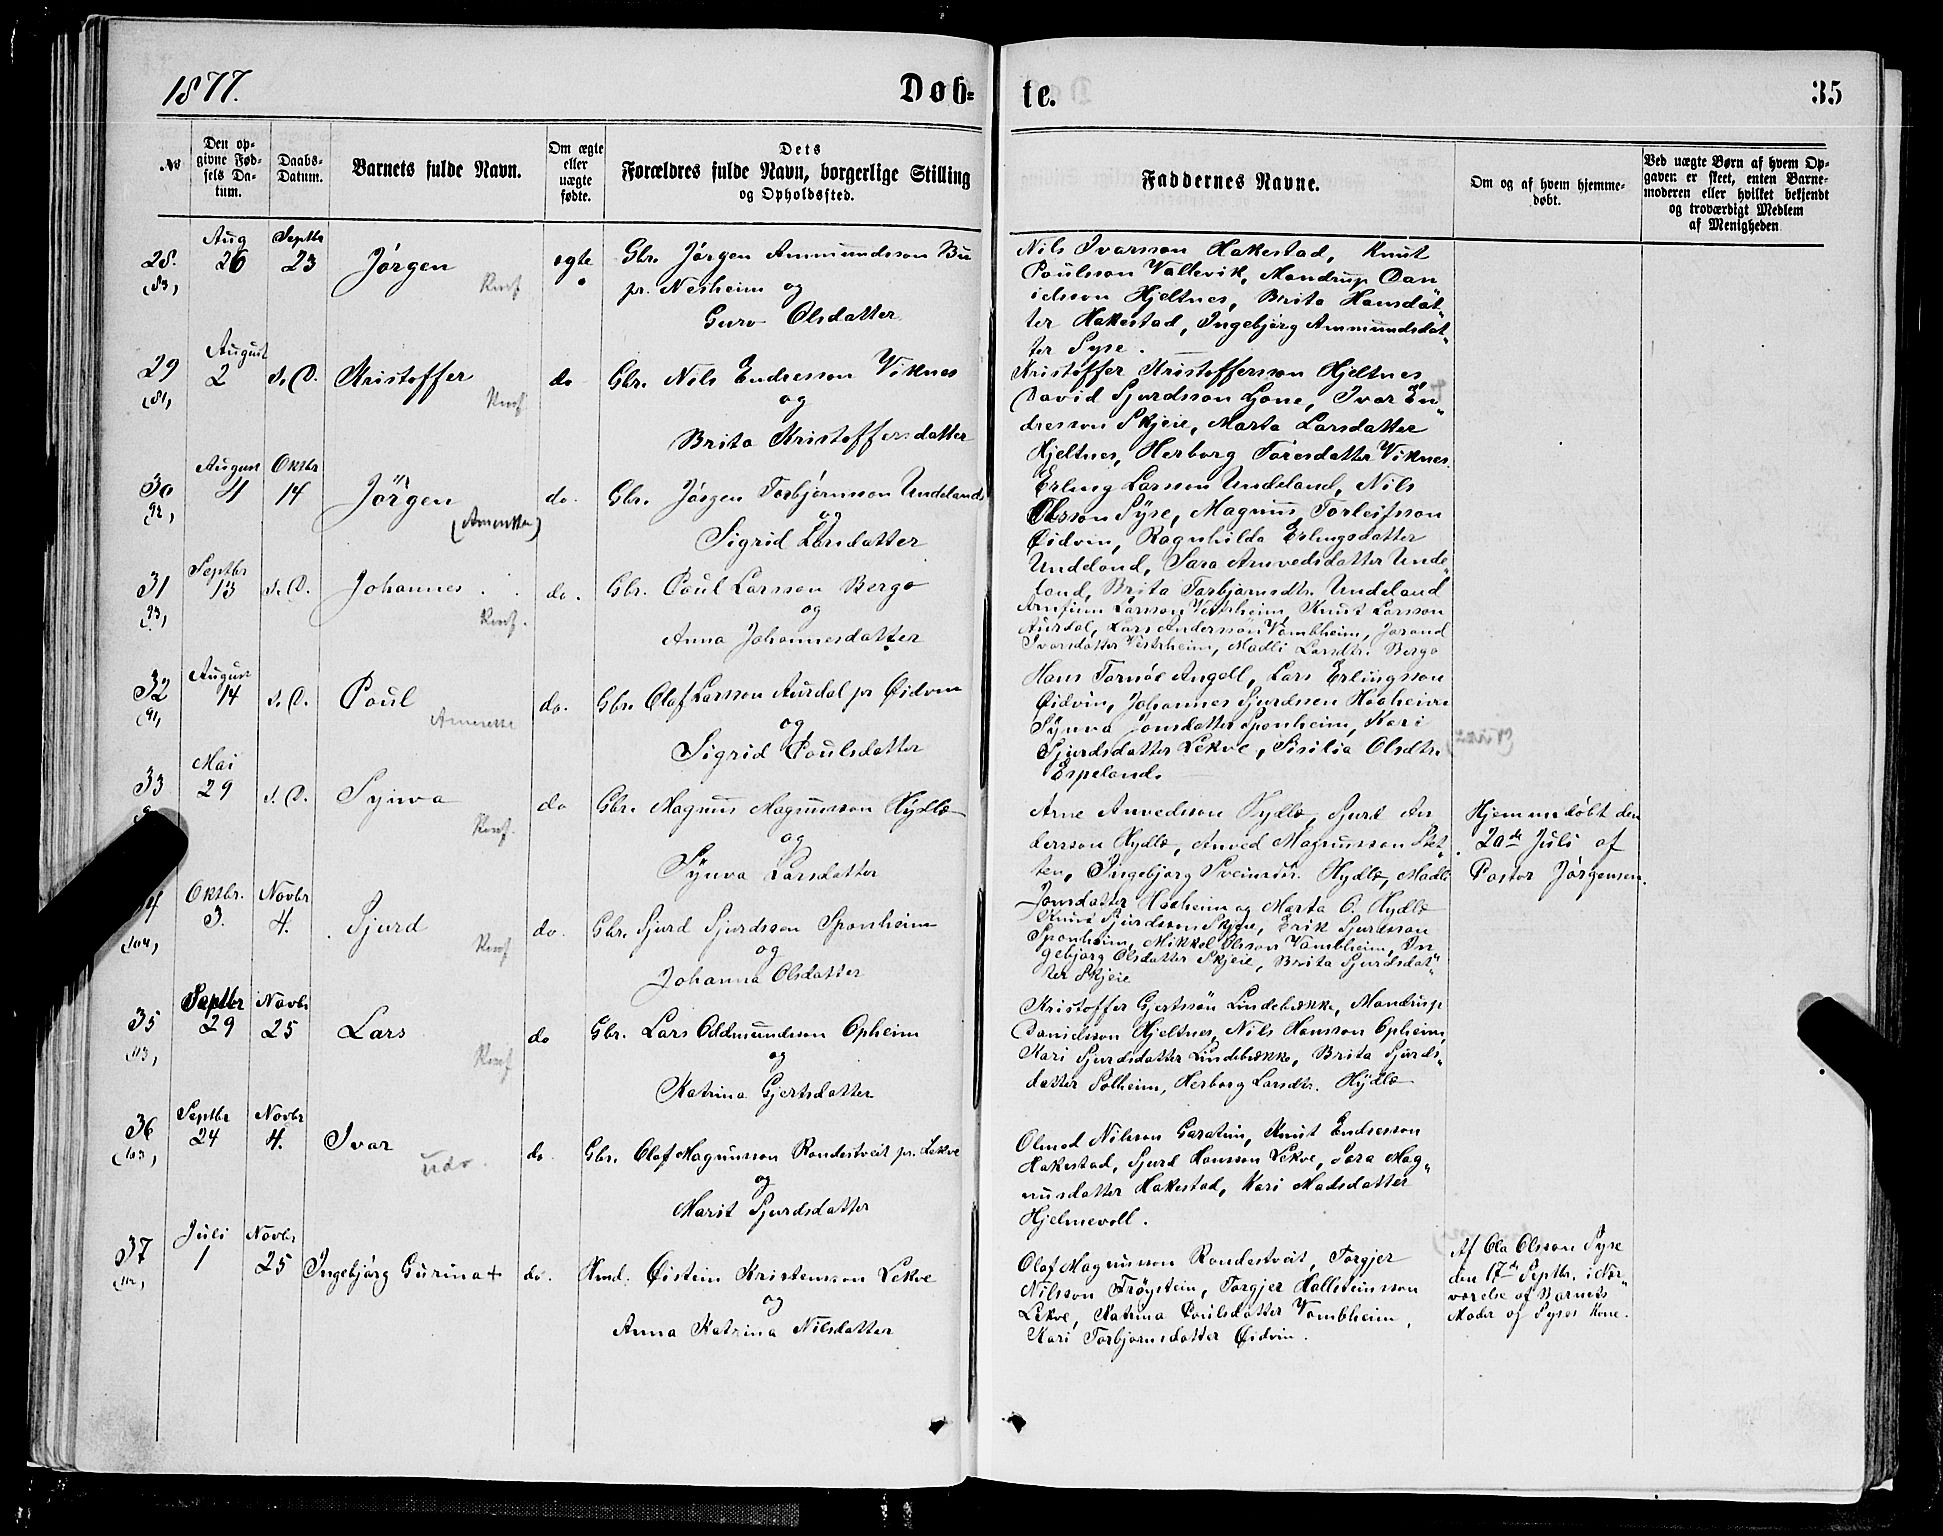 1877.
Døb-
te.
35
No
Den op-
givne Fød-
sels Da-
tum.
Daabs-
Datum.
Barnets fulde Navn.
Om ægte
eller
uægte
fødte.
Dets
Forældres fulde Navn, borgerlige Stilling
og Opholdssted.
Faddernes Navne.
Om og af hvem hjemme-
døbt.
Ved uægte Børn af hvem Op-
gaven er skeet, enten Barne-
moderen eller hvilket bekjendt
og troværdigt Medlem
af Menigheden
28.
(83)
Aug
26
Septbr
23
Jørgen
Konf
egte
Gbr. Jørgen Ammundsson Bu
pr. Nesheim og
Guro Olsdatter
Nils Ivarsson Hakestad, Knut
Poulsson Vallevik, Mandrup Dan
ielsson Hjeltnes, Brita Hansdat-
ter Hakestad, Ingebjørg Ammundsdat-
ter Syse.
29
(81)
August
2
s. D.
Kristoffer
Konf
do
Gbr. Nils Endresson Viknes
og
Brita Kristoffersdatter
Kristoffer Kristoffersson Hjeltnes
David Sjurdsson Lione, Ivar En-
dresson Skjeie, Marta Larsdatter
Hjeltnes, Herborg Toresdatter Viknes.
30
(92)
August
4
Oktbr
14
Jörgen
(Amerika)
do.
Gbr. Jörgen Torbjörnsson Undeland
og
Sigrid Larsdatter
Erling Larsson Undeland, Nils
Olsson Syse, Magnus Torleifsson
Øidvin, Ragnhilda Erlingsdatter
Undeland, Sara Amvedsdatter Unde-
land, Brita Torbjørnsdtr. Undeland
31
(93)
Septbr
13
s. D.
Johannes
Konf.
do.
Gbr. Poul Larsson Berge
og
Anna Johannesdatter
Arnfinn Larsson Vestrheim, Knut Larsson
Aurdal, Lars Andersson Vambheim, Jorand
Ivarsdatter Vestrheim, Madli Larsdtr. Berge
32
(91)
August
14
s. D.
Poul
Amerika
do.
Gbr. Olaf Larsson Aurdal pr Øidvin
og
Sigrid Poulsdatter
Hans Tornöe Angell, Lars Erlingsson
Øidvin, Johannes Sjurdsson Haaheim
Synva Jonsdatter Sponheim, Kari
Sjurdsdatter Lekve, Sisilia Olsdtr.
Espeland.
33
Mai
29
s. D.
Synva
Konf.
do
Gbr. Magnus Magnusson Hydle
og
Synva Larsdatter
Arne Amvedsson Hydle, Sjurd An
dersson Hydle, Amved Magnusson Slet-
ten, Ingebjørg Sveinsdtr. Hydle, Madli
Jonsdatter Haaheim og Marta O. Hydle
Hjemmedøbt den
20de Juli af
Pastor Jørgensen.
4
(104)
Oktbr.
3.
Novbr
4.
Sjurd
Konf
do.
Gbr. Sjurd Sjurdsson Sponheim
og
Johanna Olsdatter
Knut Sjurdsson Skjeie, Erik Sjurdsson
Sponheim, Mikkel Olsson Vambheim, In
gebjørg Olsdatter Skjeie, Brita Sjurdsdat-
ter Skjeie
35
(113)
Septbr
29
Novbr
25
Lars
Konf
do
Gbr. Lars Oddmundsson Opheim
og
Katrina Gjertsdatter
Kristoffer Gjertssön Lindebække, Mandrup
Danielsson Hjeltnes, Nils Hansson Opheim,
Kari Sjurdsdatter Lindebække, Brita Sjurds-
datter Solheim, Herborg Larsdtr. Hydle
36
(103)
Septbr
24
Novbr
4.
Ivar
udv.
do.
Gbr. Olaf Magnusson Rondestveit pr. Lekve
og
Marit Sjurdsdatter
Olmod Nilsson Garatun, Knut Endresson
Hakestad, Sjurd Hansson Lekve, Sara Mag-
nusdatter Hakestad, Kari Madsdatter
Hjelmevoll.
37
(112)
Juli
1
Novbr
25
Ingebjørg Gurina +
do.
Hmd. Øistein Kristensson Lekve
og
Anna Katrina Nilsdatter
Olaf Magnusson Rondestveit, Torgjer
Nilsson Trøystein, Torgjer Hallsteinsson
Lekve, Katrina Poulsdatter Vambheim,
Kari Torbjørnsdatter Øidvin.
Af Ola Olsson Syse
den 17de Septbr. i Nær-
værelse af Barnets
Moder og Syses Kone.